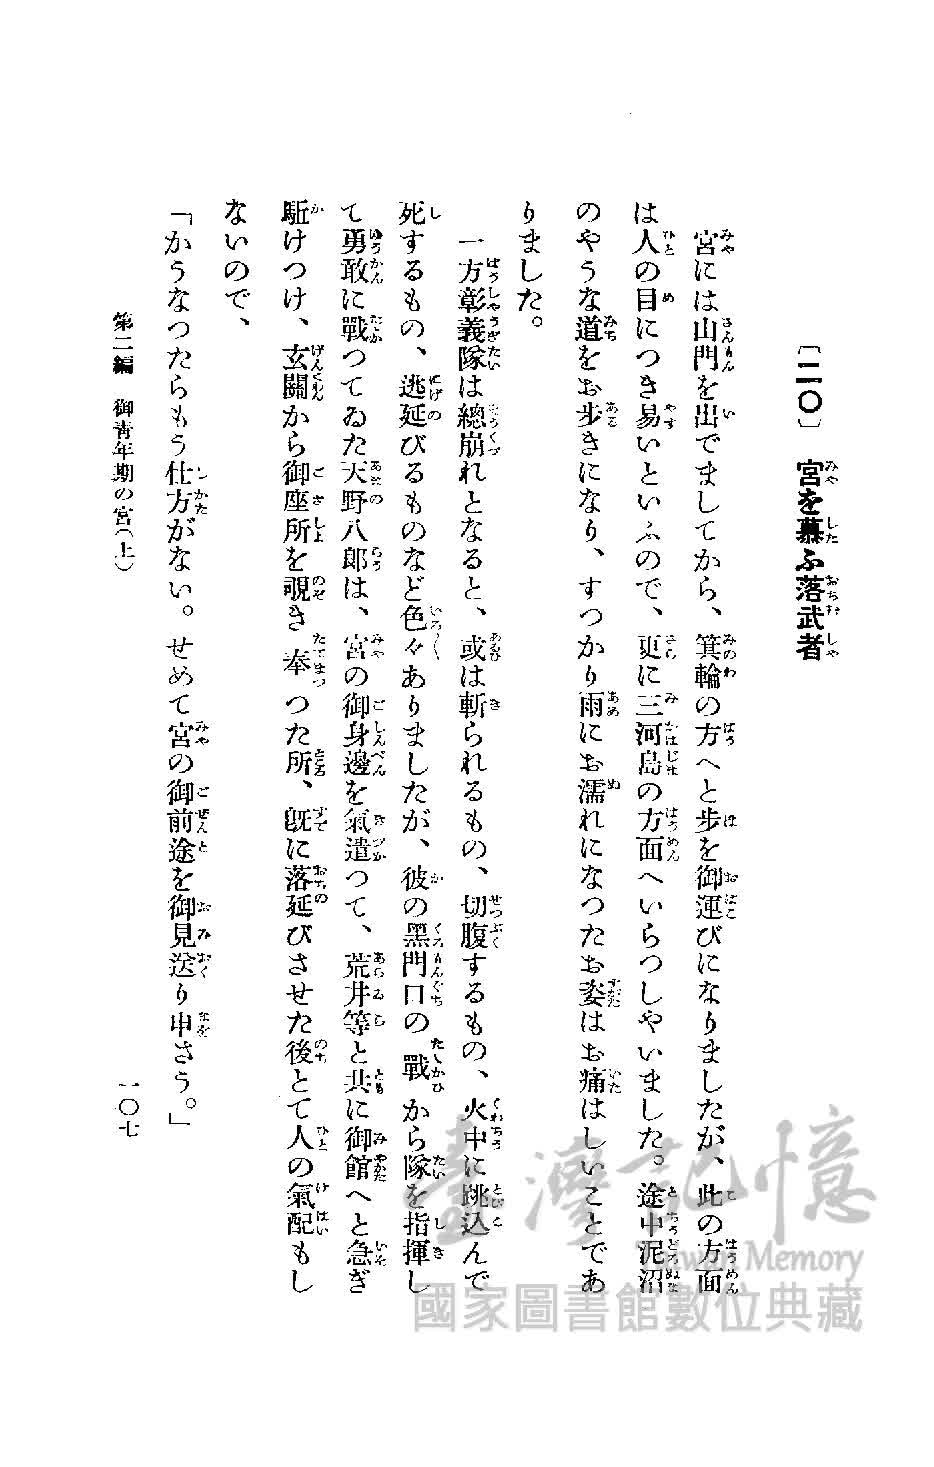 〔二〇〕 宮を慕ふ落武者
宮には山門を出でましてから、箕輪の方へと步を御運びになりましたが、此の方面
は人の目につき易いといふので、更に三河島の方面へいらつしやいました。途中泥沼
のやうな道をお步きになり、すつかり雨にお濡れになつたお姿はお痛はしいことであ
りました。
一方彰義隊は總崩れとなると、或は斬られるもの、切腹するもの、火中に跳込んで
死するもの、逃延びるものなど色々ありましたが、彼の黑門口の戰から隊を指揮し
て勇敢に戰つてゐた天野八郞は、宮の御身邊を氣遣つて、荒井等と共に御館へと急ぎ
駈けつけ、玄關から御座所を覗き奉つた所、旣に落延びさせた後とて人の氣配もし
ないので、
「かうなつたらもう仕方がない。せめて宮の御前途を御見送り申さう。」
第二編 御靑年期の宮(上)
一〇七
臺灣記憶
Taiwan Memory
國家圖書館數位典藏